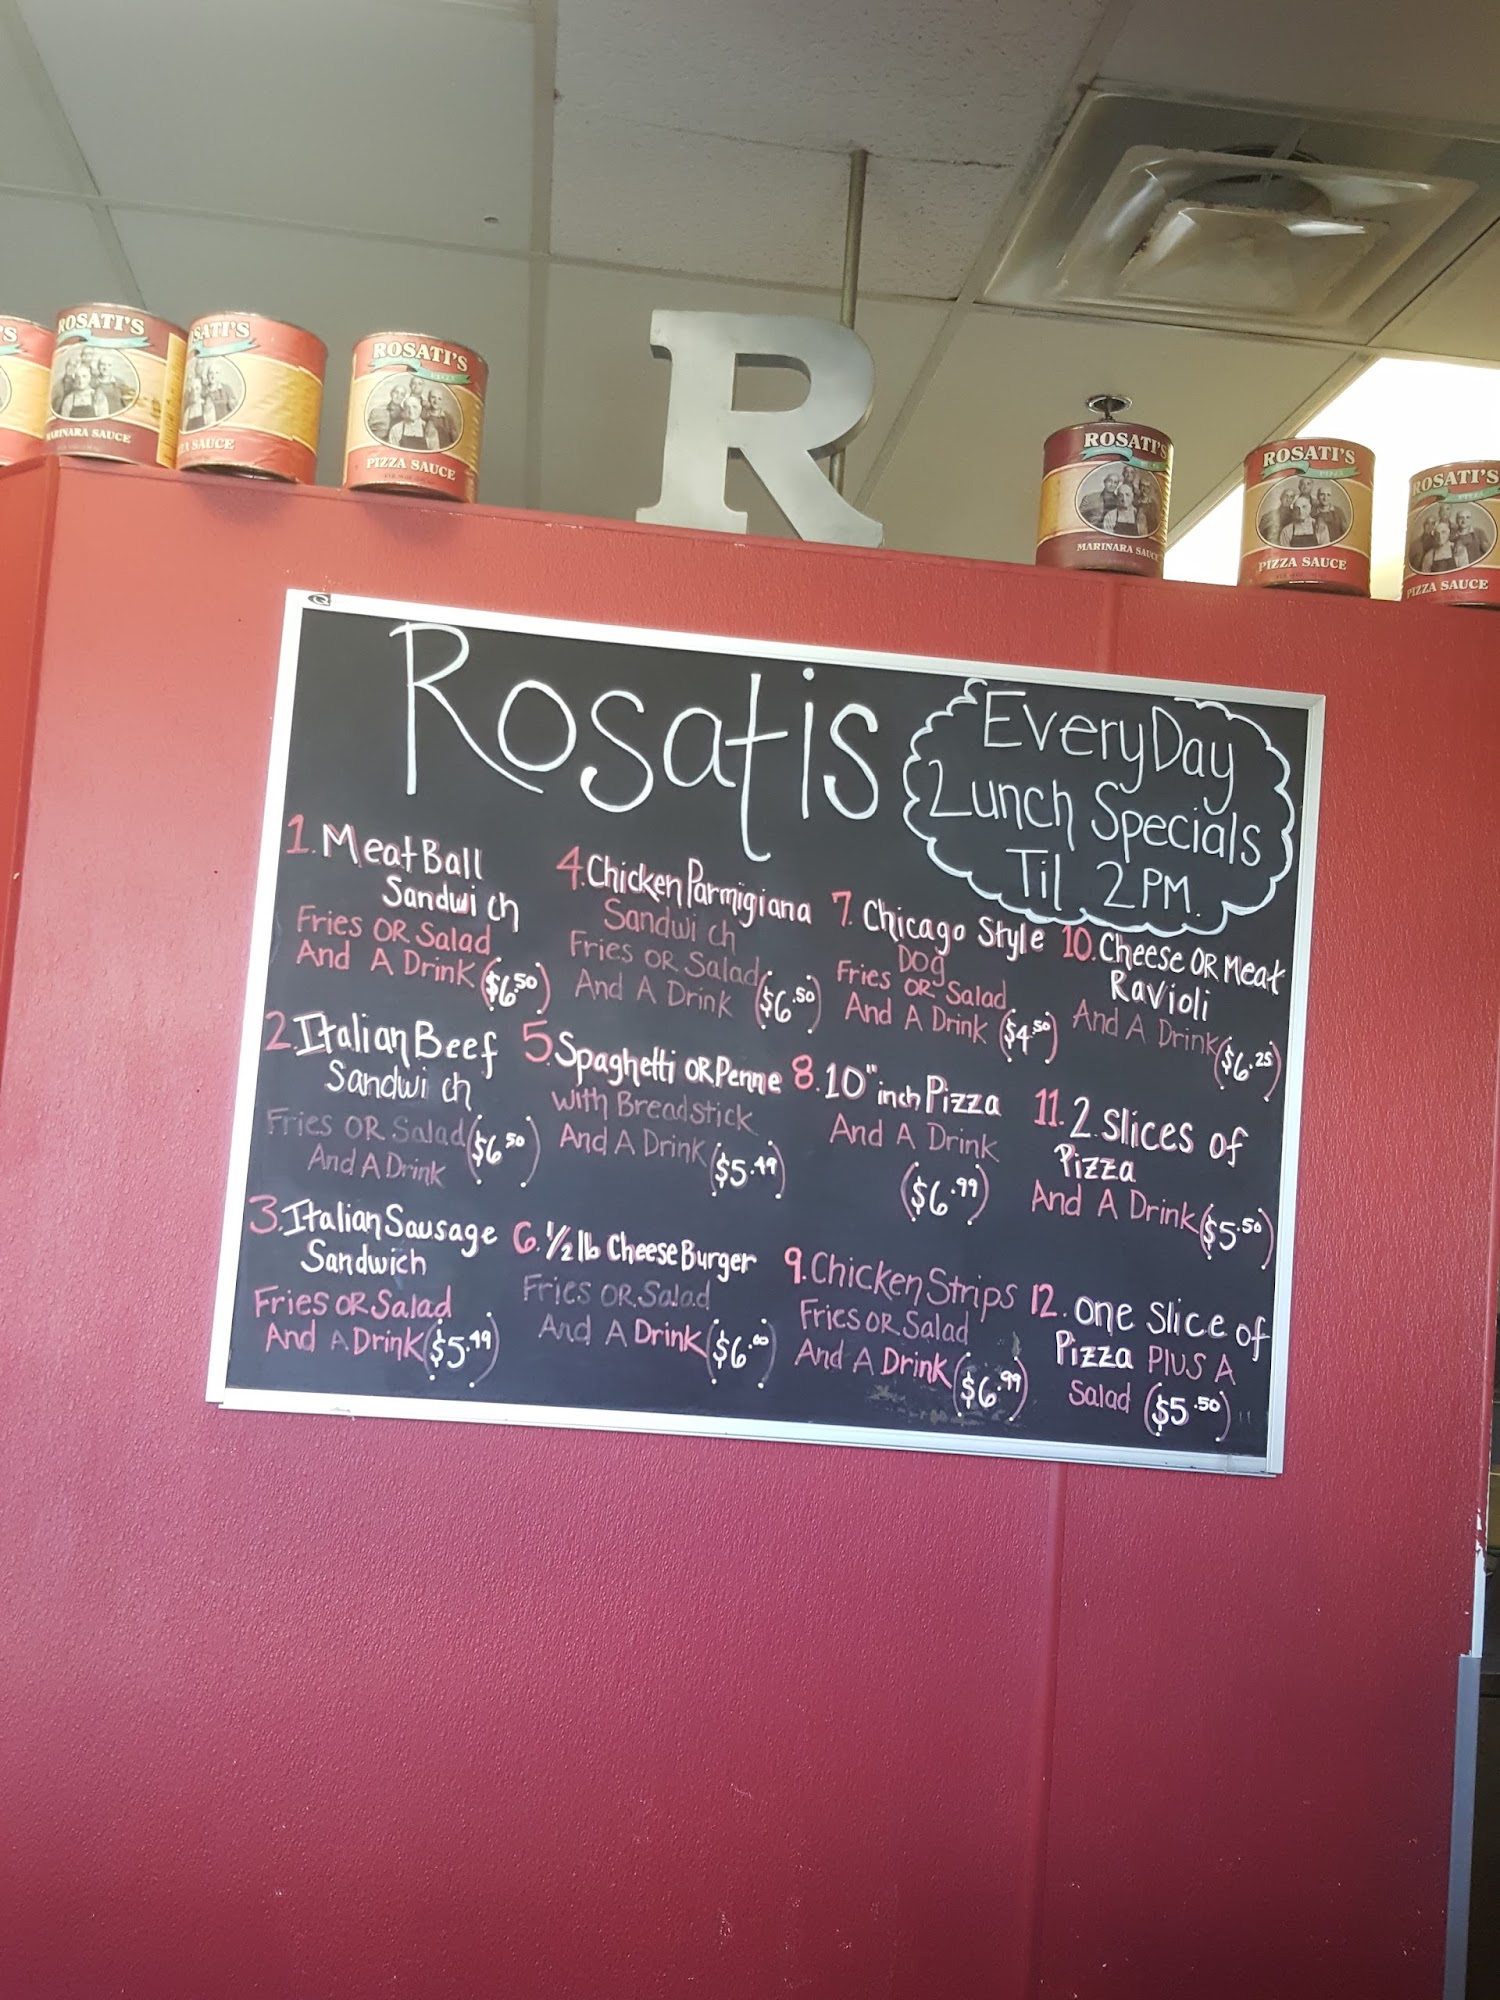 ROSATI'S
MARINARA SAUCE
ROSATI'S
PIZZA SAUCE
R
ROSATI'S
MARINARA SAUCE
ROSATI'S
PIZZA SAUCE
ROSATI'S
PIZZA SAUCE
Rosatis
EveryDay
Lunch Specials
Til 2PM.
1. Meat Ball
Sandwich
Fries OR Salad
And A Drink ($6.50)
2. Italian Beef
Sandwich
Fries OR Salad ($6.50)
And A Drink
3. Italian Sausage
Sandwich
Fries OR Salad
And A Drink ($5.49)
4. Chicken Parmigiana
Sandwich
Fries OR Salad
And A Drink ($6.50)
5. Spaghetti OR Penne
With Breadstick
And A Drink ($5.49)
6. 1/2 lb Cheese Burger
Fries OR Salad
And A Drink ($6.00)
7. Chicago Style
Dog
Fries OR Salad
And A Drink ($4.50)
8. 10" inch Pizza
And A Drink
($6.99)
9. Chicken Strips
Fries OR Salad
And A Drink ($6.99)
10. Cheese OR Meat
Ravioli
And A Drink ($6.25)
11. 2 Slices of
Pizza
And A Drink ($5.50)
12. One Slice of
Pizza PLUS A
Salad ($5.50)